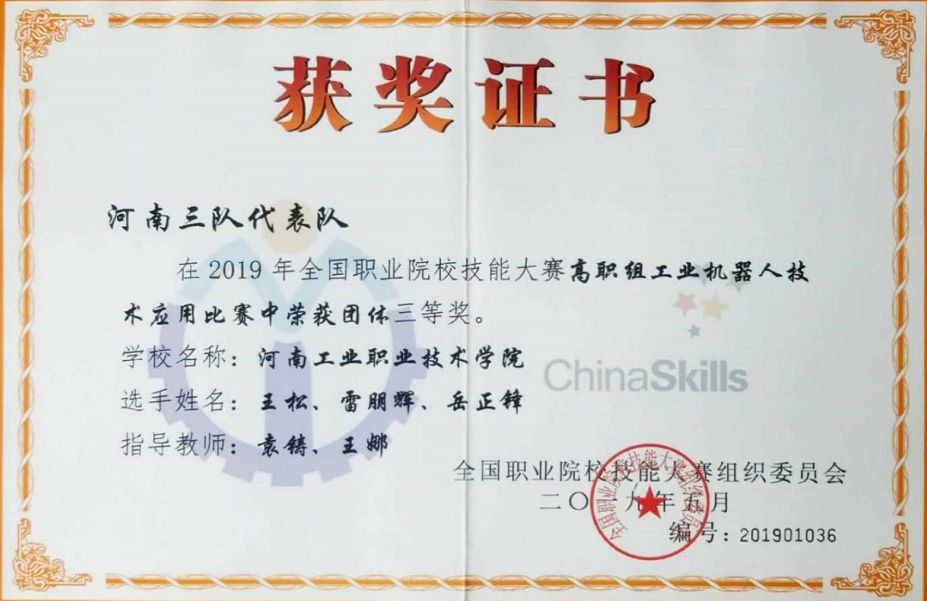 获奖证书
河南三队代表队
在2019年全国职业院校技能大赛高职组工业机器人技
术应用比赛中荣获团体三等奖。
学校名称：河南工业职业技术学院
ChinaSkills
选手姓名：王松、雷朋辉、岳正锋
指导教师：袁铸、王娜
全国职业院校技能大赛组织委员会
二〇一九年五月
编号：201901036
全国职业院校技能大赛组织委员会